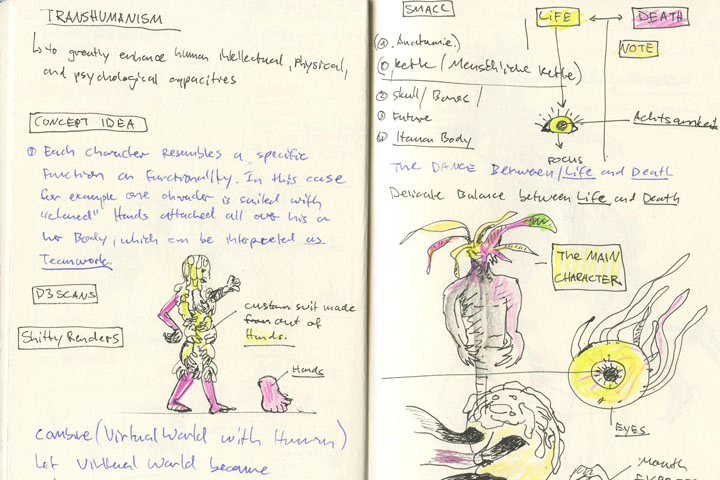 TRANSHUMANISM
to greatly enhance human intellectual, physical,
and psychological capacities
CONCEPT IDEA
Each character resembles a specific
function or functionality. In this case
for example one character is suited with
"cloned" Hands attached all over his or
her Body, which can be interpreted as
Teamwork.
D3SCANS
Shitty Renders
custom suit made
from out of
Hands.
Hands
combine (Virtual World with Human)
Let Virtual World become
SMALL
LIFE
DEATH
NOTE
Anatomie.
Kette / Menschliche Kette)
② Skull / Bones /
③ Future
Human Body
Achtsamkeit
FOCUS
The DANCE Between / Life and Death
Delicate Balance between Life and Death
The MAIN
CHARACTER
EYES
Mouth